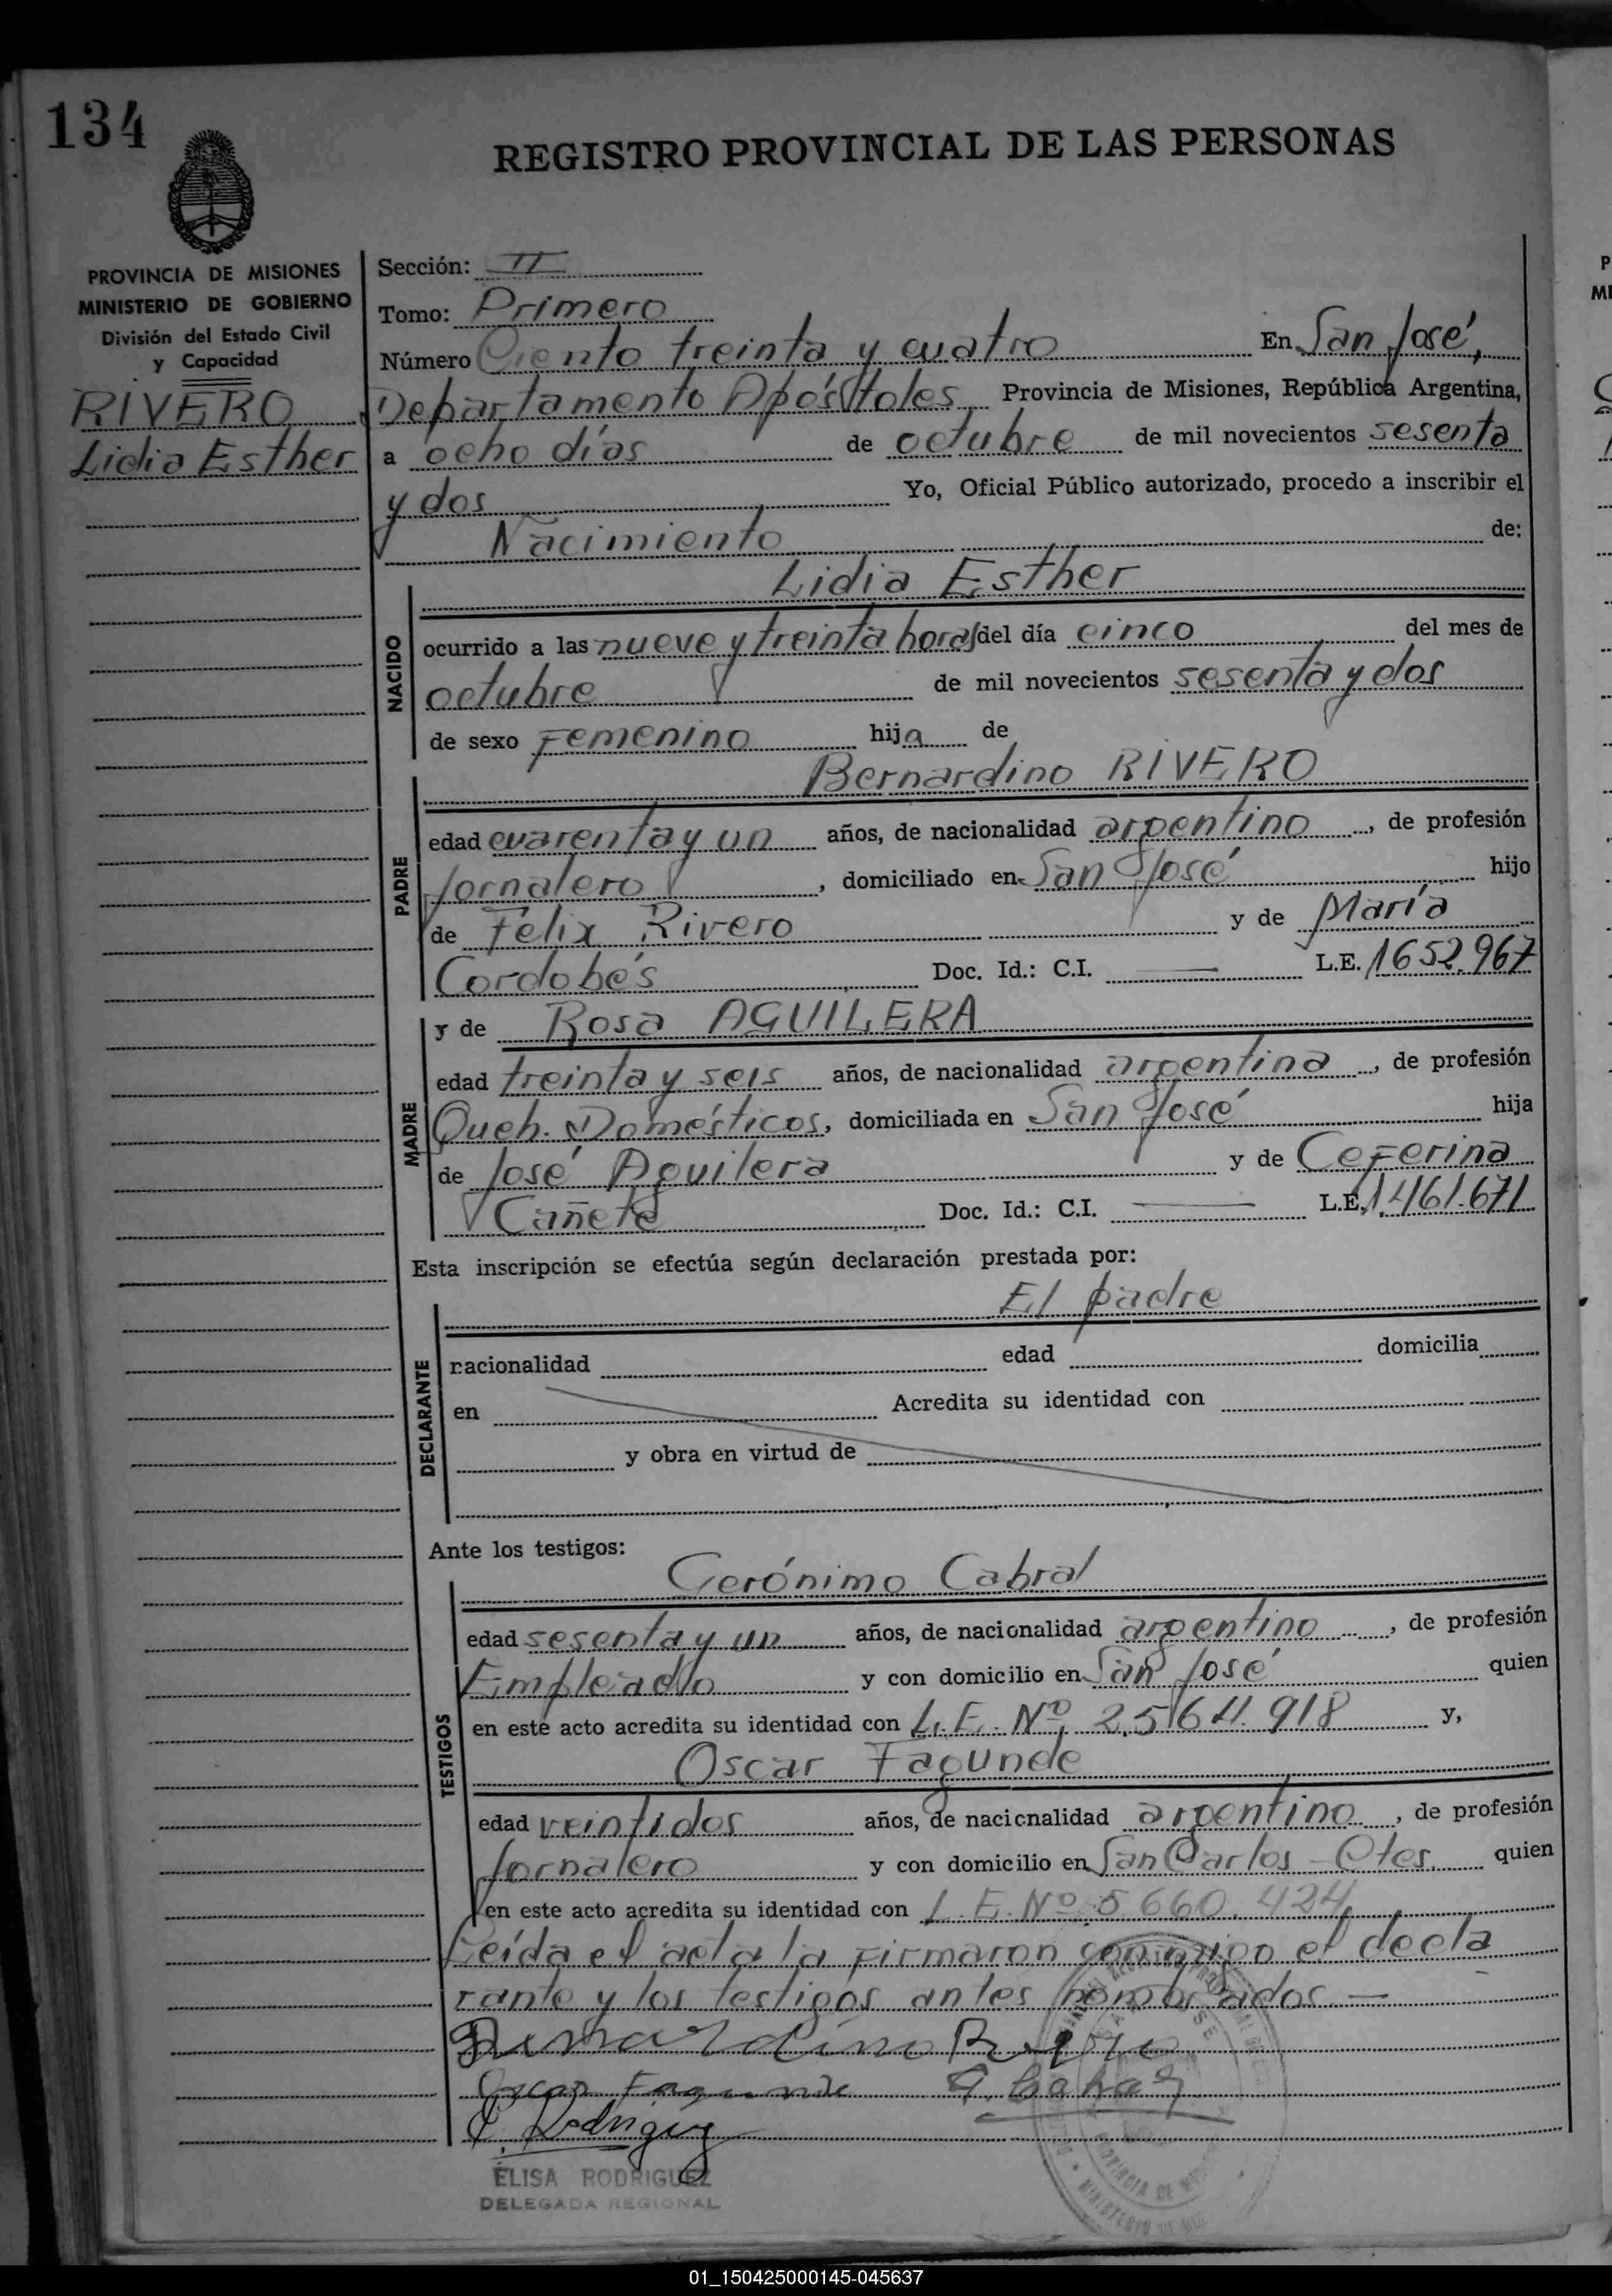 134
REGISTRO PROVINCIAL DE LAS PERSONAS
PROVINCIA DE MISIONES
MINISTERIO DE GOBIERNO
División del Estado Civil
y Capacidad
RIVERO
Lidia Esther
Sección: II
Tomo: Primero
Número Ciento treinta y cuatro En San José,
Departamento Apóstoles Provincia de Misiones, República Argentina,
a ocho días de octubre de mil novecientos sesenta
y dos Yo, Oficial Público autorizado, procedo a inscribir el
Nacimiento de:
Lidia Esther
NACIDO
ocurrido a las nueve y treinta horas del día cinco del mes de
octubre de mil novecientos sesenta y dos
de sexo Femenino hija de
Bernardino RIVERO
PADRE
edad cuarenta y un años, de nacionalidad argentino, de profesión
Jornalero, domiciliado en San José hijo
de Felix Rivero y de María
Cordobés Doc. Id.: C.I. —— L.E. 1652.967
y de Rosa AGUILERA
MADRE
edad treinta y seis años, de nacionalidad argentina, de profesión
Queh. Domésticos, domiciliada en San José hija
de José Aguilera y de Ceferina
Cañete Doc. Id.: C.I. —— L.E. 1.461.671
Esta inscripción se efectúa según declaración prestada por:
El padre
DECLARANTE
nacionalidad edad domicilia
en Acredita su identidad con
y obra en virtud de
Ante los testigos:
Gerónimo Cabral
TESTIGOS
edad sesenta y un años, de nacionalidad argentino, de profesión
Empleado y con domicilio en San José quien
en este acto acredita su identidad con L.E. Nº 2.564.918 y,
Oscar Fagunde
edad veintidos años, de nacionalidad argentino, de profesión
Jornalero y con domicilio en San Carlos - Ctes. quien
en este acto acredita su identidad con L.E. Nº 5.660.424
Leída el acta la firmaron conmigo el decla
rante y los testigos antes nombrados —
Bernardino Rivero
Oscar Fagunde G. Cabral
E. Rodriguez
ELISA RODRIGUEZ
DELEGADA REGIONAL
01_150425000145-045637